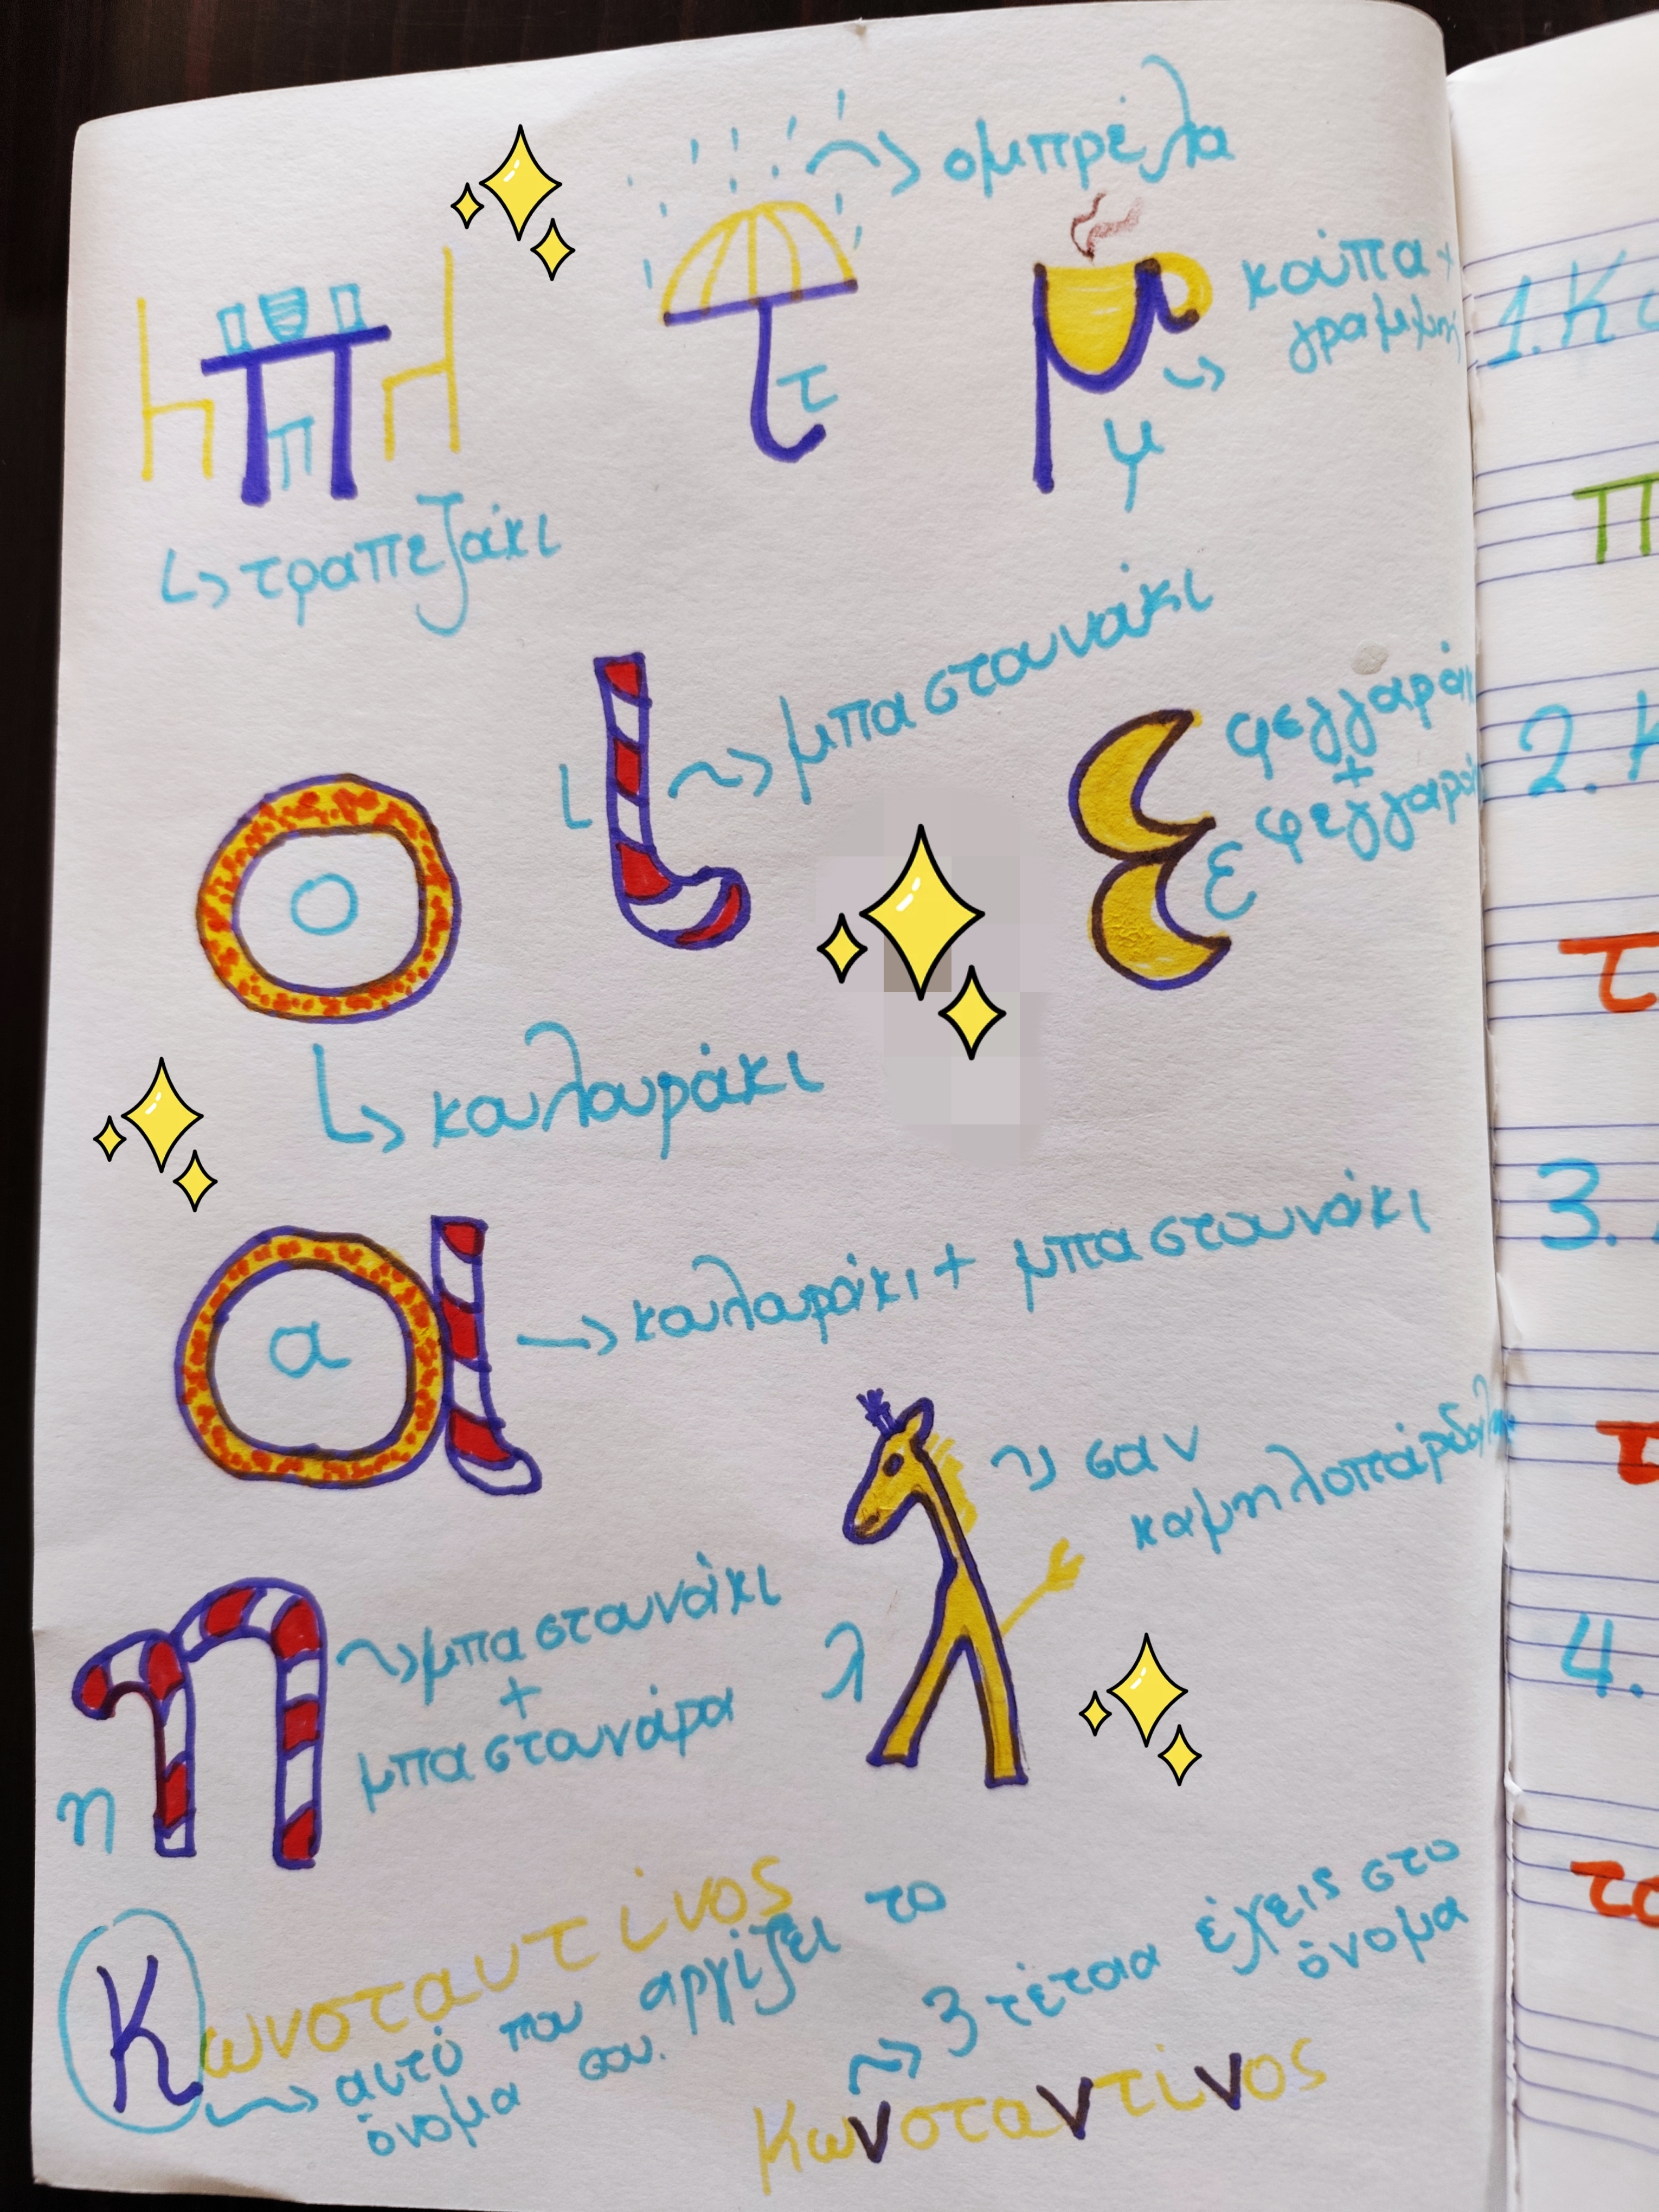 ομπρέλα
κούπα +
γραμμή
π
τ
μ
τραπεζάκι
μπαστουνάκι
ι
φεγγαράκι
+
φεγγαρά
ε
ο
κουλουράκι
α
κουλουράκι + μπαστουνάκι
σαν
καμηλοπάρδαλη
μπαστουνάκι
+
μπαστουνάρα
λ
η
Κωνσταντίνος
αυτό που αρχίζει το
όνομα σου.
3 τέτοια έχεις στο
όνομα
Κωνσταντίνος
1. Κ
π
2. Κ
τ
3.
τ
4.
το